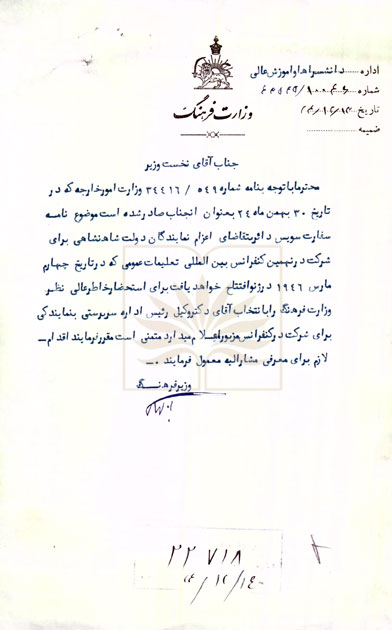 وزارت فرهنگ
اداره دانشسراها و آموزش عالی
شماره
تاریخ
ضمیمه
جناب آقای نخست وزیر
محترما با توجه بنامه شماره ۵۴۹ / ۳۴۴۱۶ وزارت امور خارجه که در
تاریخ ۳۰ بهمن ماه ۲۴ بعنوان انجناب صادر شده است موضوع نامه
سفارت سویس دائر بتقاضای اعزام نمایندگان دولت شاهنشاهی برای
شرکت در نهمین کنفرانس بین المللی تعلیمات عمومی که در تاریخ چهارم
مارس ۱۹۴۶ در ژنو افتتاح خواهد یافت برای استحضار خاطر عالی نظر
وزارت فرهنگ را بانتخاب آقای دکتر وکیل رئیس اداره سرپرستی بنمایندگی
برای شرکت در کنفرانس مزبور اعلام میدارد متمنی است مقرر فرمایند اقدام
لازم برای معرفی مشارالیه معمول فرمایند .
وزیر فرهنگ
۲۲۷۱۸
۲۴/۱۲/۱۴